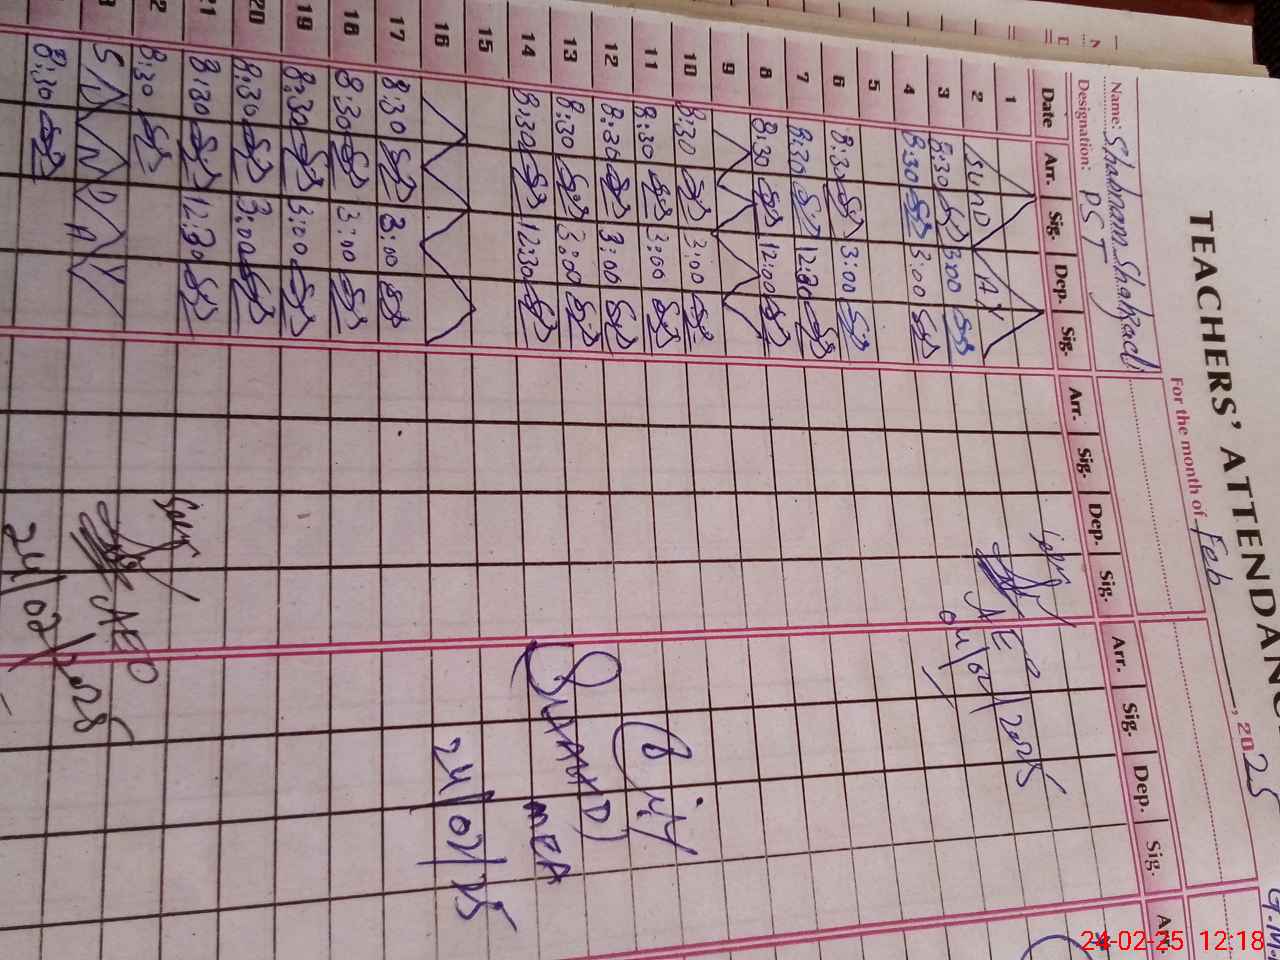 TEACHERS' ATTENDANC
For the month of Feb, 2025
Name: Shabnam Shahzadi
Designation: PST
Date Arr. Sig. Dep. Sig. Arr. Sig. Dep. Sig. Arr. Sig. Dep. Sig.
1
2 SUNDAY
3 8:30 3:00
4 8:30 3:00
5
6 8:30 3:00
7 8:30 12:30
8 8:30 12:00
9
10 8:30 3:00
11 8:30 3:00
12 8:30 3:00
13 8:30 3:00
14 8:30 12:30
15
16
17 8:30 3:00
18 8:30 3:00
19 8:30 3:00
20 8:30 3:00
21 8:30 12:30
8:30
SUNDAY
8:30
AEO
04/02/2025
MEA
24/02/25
AEO
24/02/2025
24-02-25 12:18